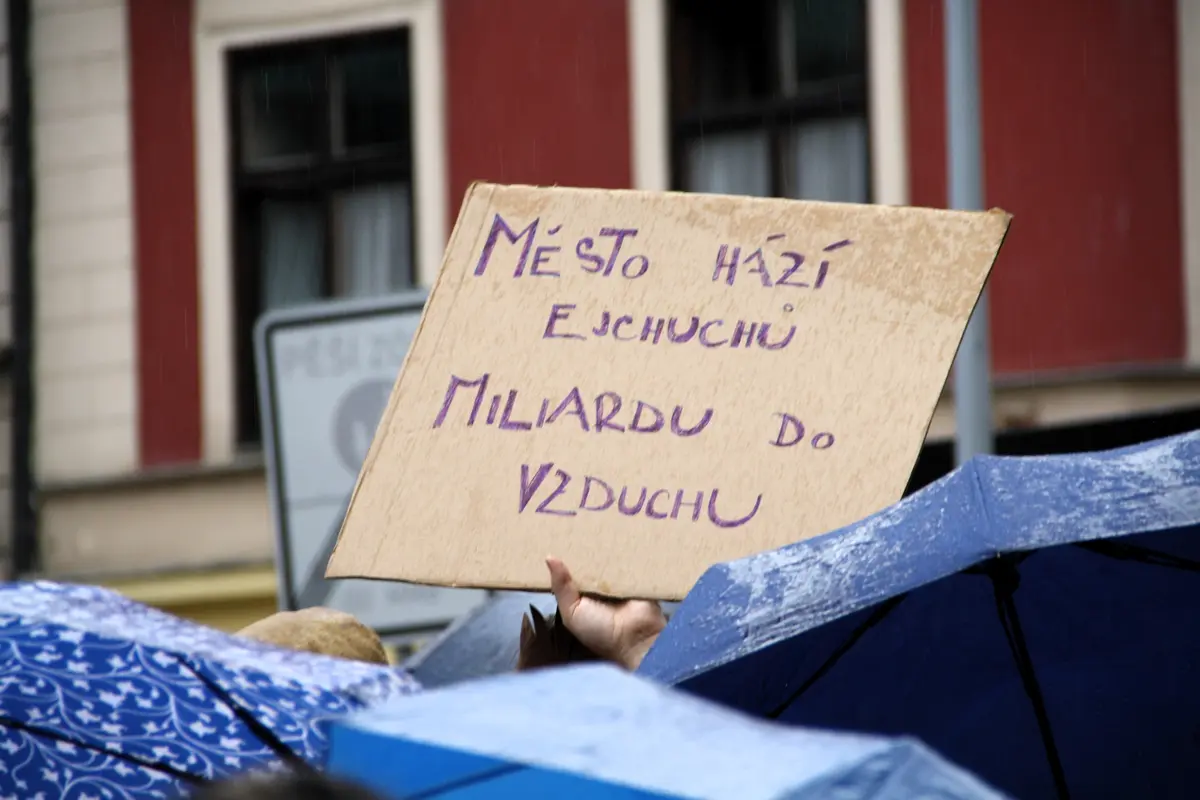 MĚSTO HÁZÍ
EJCHUCHŮ
MILIARDU DO
VZDUCHU
PĚŠÍ